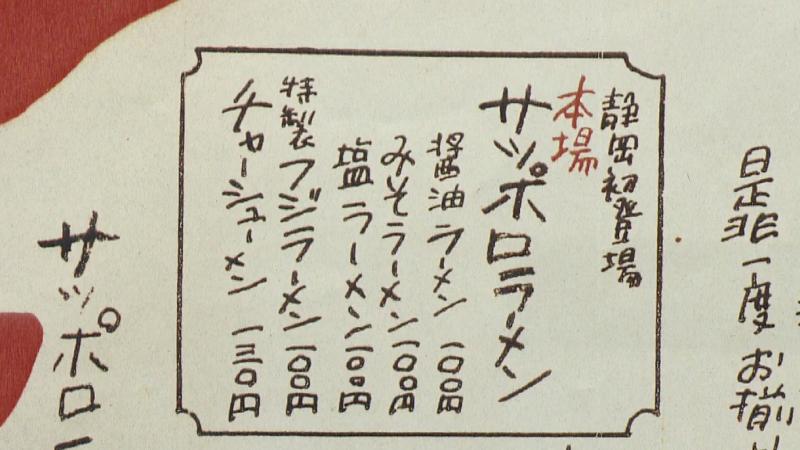 是非一度お揃
静岡初登場
本場
サッポロラーメン
醤油ラーメン 一〇〇円
みそラーメン 一〇〇円
塩ラーメン 一〇〇円
特製フジラーメン 一〇〇円
チャーシューメン 一三〇円
サッポロ